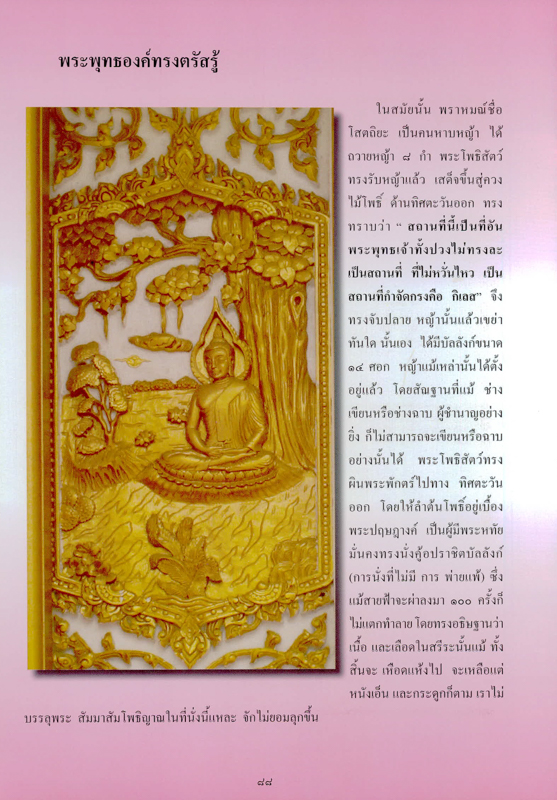 พระพุทธองค์ทรงตรัสรู้
ในสมัยนั้น พราหมณ์ชื่อ
โสตถิยะ เป็นคนหาบหญ้า ได้
ถวายหญ้า ๘ กำ พระโพธิสัตว์
ทรงรับหญ้าแล้ว เสด็จขึ้นสู่ควง
ไม้โพธิ์ ด้านทิศตะวันออก ทรง
ทราบว่า “ สถานที่นี้เป็นที่อัน
พระพุทธเจ้าทั้งปวงไม่ทรงละ
เป็นสถานที่ ที่ไม่หวั่นไหว เป็น
สถานที่กำจัดกรงคือ กิเลส” จึง
ทรงจับปลาย หญ้านั้นแล้วเขย่า
ทันใด นั้นเอง ได้มีบัลลังก์ขนาด
๑๔ ศอก หญ้าแม้เหล่านั้นได้ตั้ง
อยู่แล้ว โดยสัณฐานที่แม้ ช่าง
เขียนหรือช่างฉาบ ผู้ชำนาญอย่าง
ยิ่ง ก็ไม่สามารถจะเขียนหรือฉาบ
อย่างนั้นได้ พระโพธิสัตว์ทรง
ผินพระพักตร์ไปทาง ทิศตะวัน
ออก โดยให้ลำต้นโพธิ์อยู่เบื้อง
พระปฤษฎางค์ เป็นผู้มีพระหทัย
มั่นคงทรงนั่งคู้อปราชิตบัลลังก์
(การนั่งที่ไม่มี การ พ่ายแพ้) ซึ่ง
แม้สายฟ้าจะผ่าลงมา ๑๐๐ ครั้งก็
ไม่แตกทำลาย โดยทรงอธิษฐานว่า
เนื้อ และเลือดในสรีระนั้นแม้ ทั้ง
สิ้นจะ เหือดแห้งไป จะเหลือแต่
หนังเอ็น และกระดูกก็ตาม เราไม่
บรรลุพระ สัมมาสัมโพธิญาณในที่นั่งนี้แหละ จักไม่ยอมลุกขึ้น
๘๘